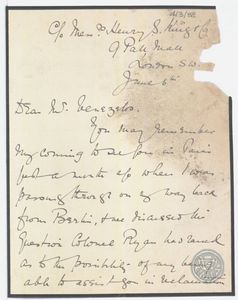 413/52
c/o Messrs Henry S. King & Co
9 Pall Mall
London S.W.
June 6th
Dear Mr. Venezelos.
You may remember
my coming to see you in Paris
just a month ago when I was
passing through on my way back
from Berlin, & we discussed the
question Colonel Ryan had raised
as to the possibility of my being
able to assist you in